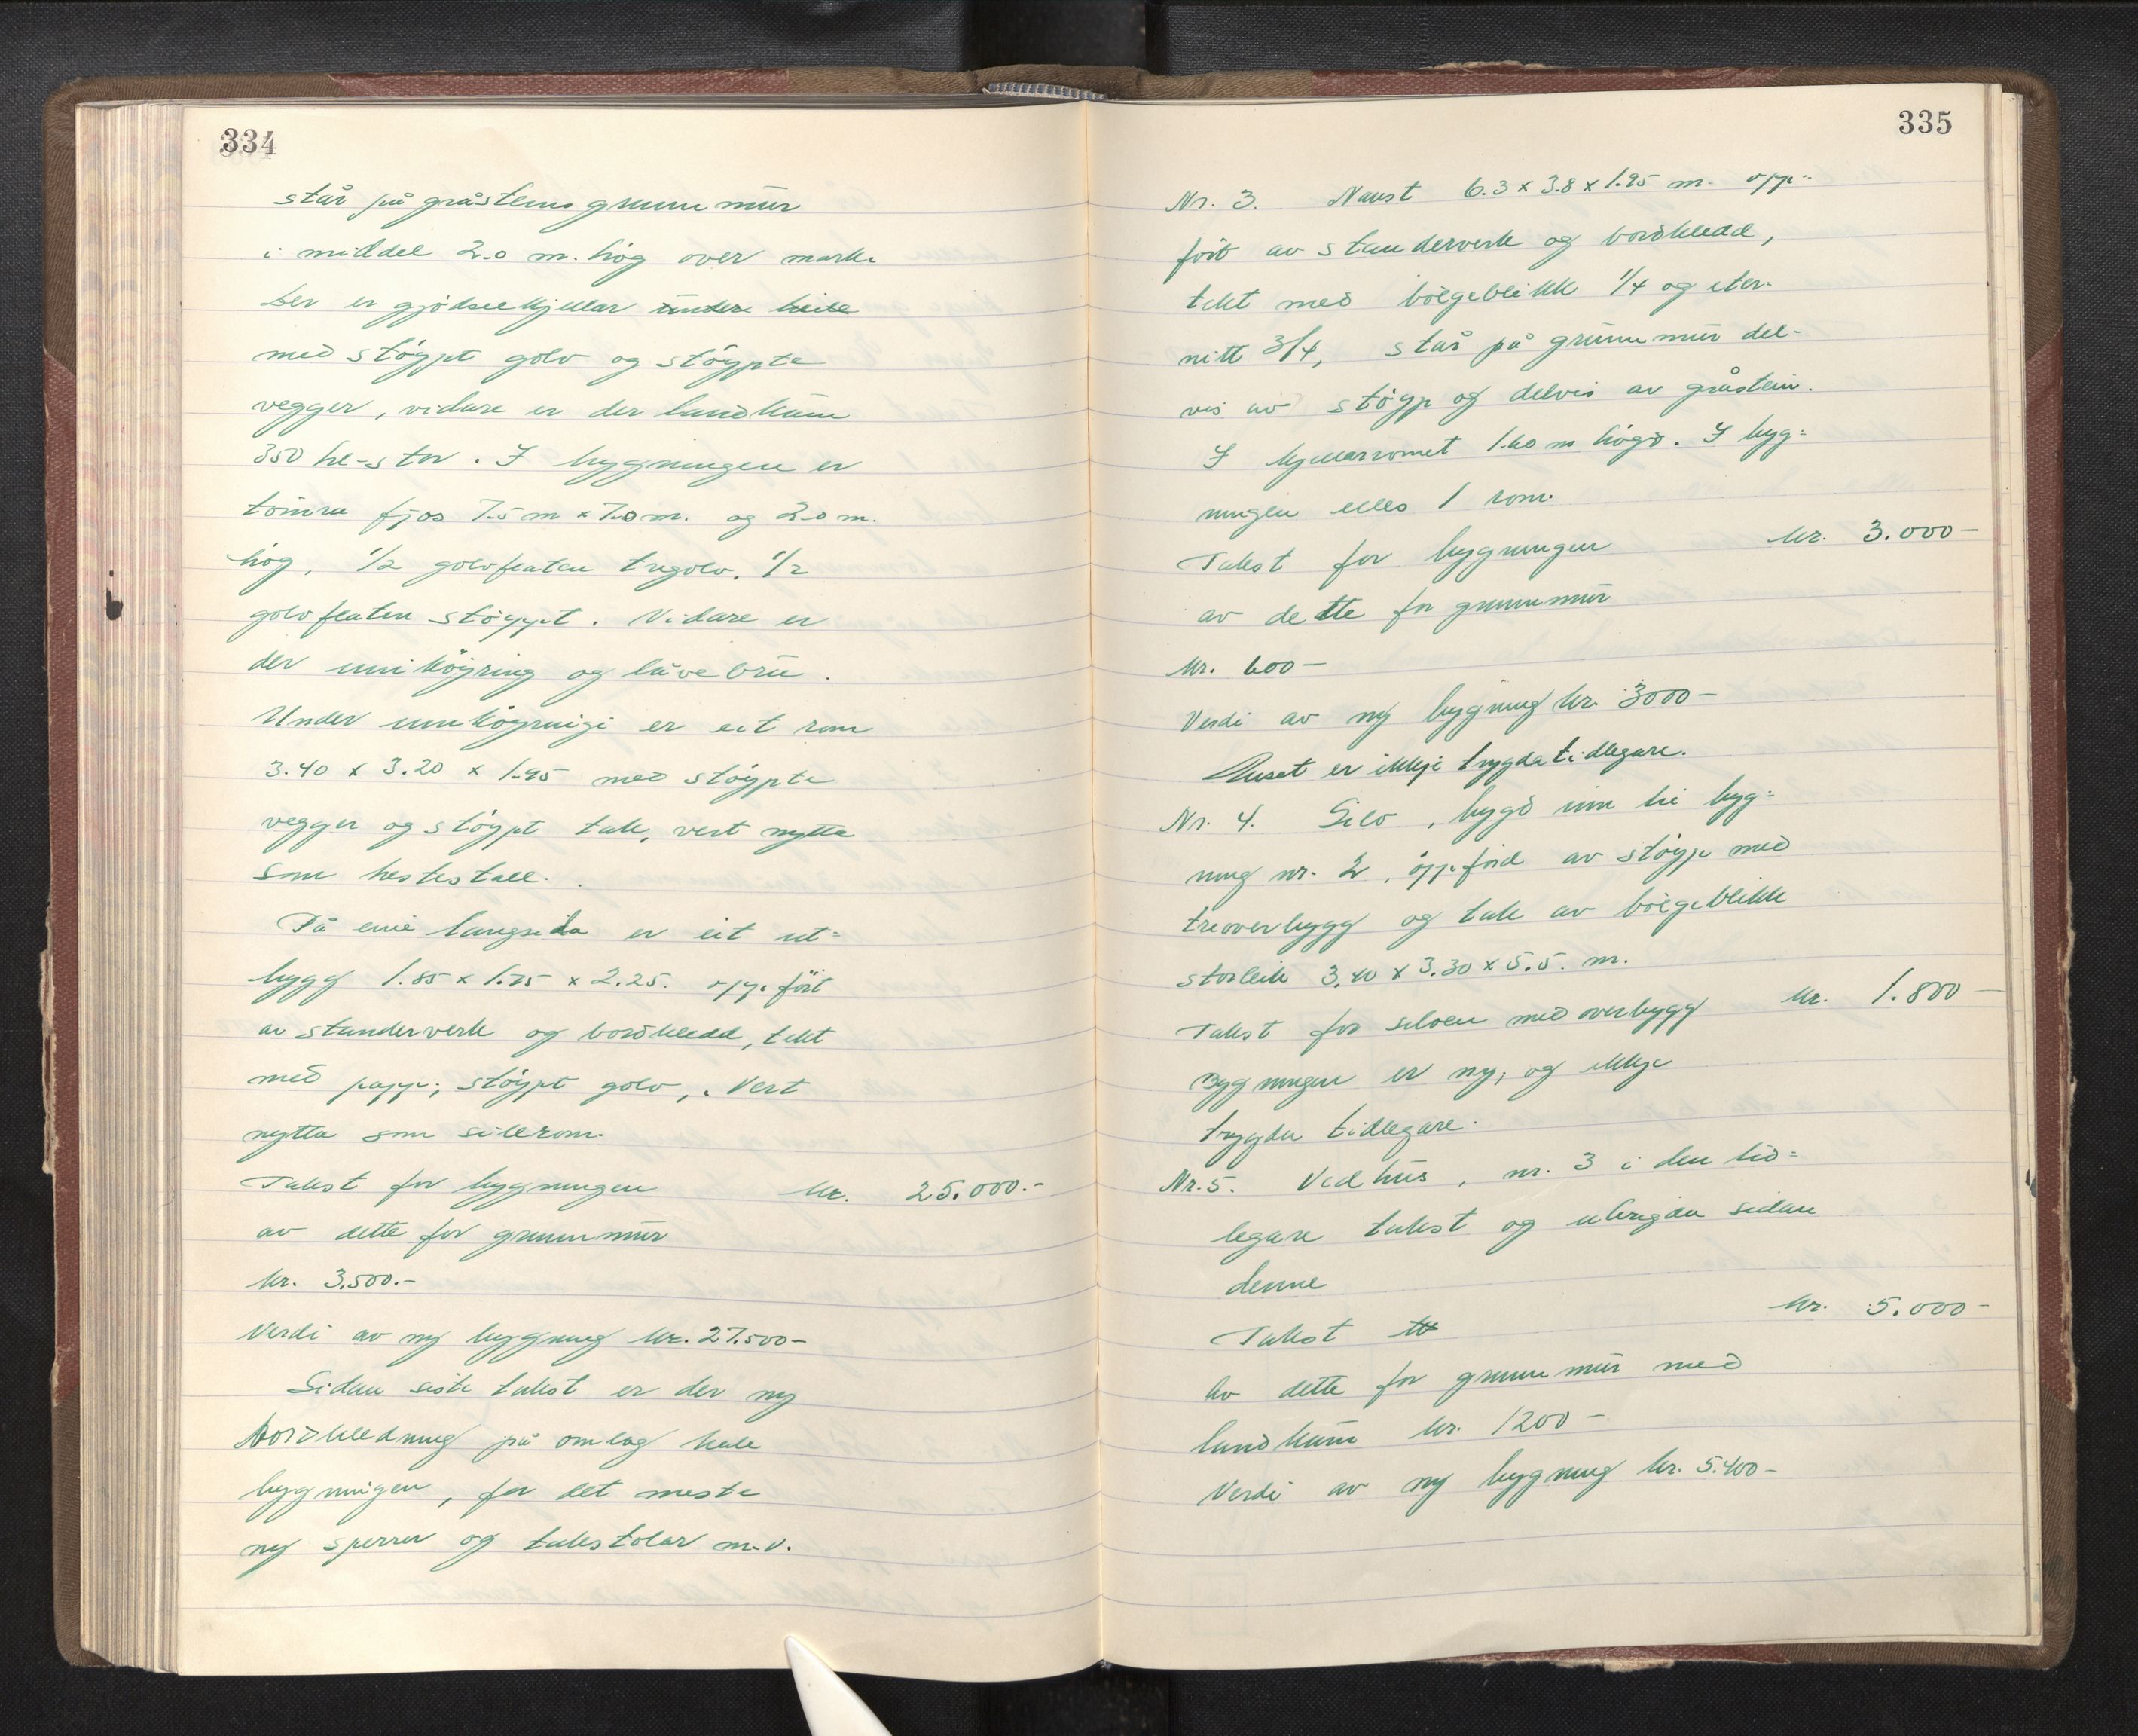 334
står på gråsteins grunnmur
i middel 2.0 m. høg over mark.
Der er gjødselkjellar under heile
med støypt golv og støypte
vegger, vidare er der landkum
350 hl-stor. I byggningen er
tømra fjøs 7.5 m x 7.0 m. og 2.0 m.
høg, 1/2 golvflaten tregolv, 1/2
golvflaten støypt. Vidare er
der innkøyring og låvebru.
Under innkøyringi er eit rom
3.40 x 3.20 x 1.95 med støypte
vegger og støypt tak, vert nytta
som hestestall.
På eine langsida er eit ut=
bygg 1.85 x 1.75 x 2.25. oppført
av standerverk og bordkledd, tekt
med papp; støypt golv,. Vert
nytta som silerom.
Takst for byggningen kr. 25.000.-
av dette for grunnmur
kr. 3.500.-
Verdi av ny byggning kr. 27.500-
Sidan siste takst er der ny
bordkledning på omlag hele
bygningen, for det meste
ny sperrer og takstolar m.v.
335
Nr. 3. Naust 6.3 x 3.8 x 1.95 m. opp-
ført av standerverk og bordkledd,
tekt med bølgeblikk 1/4 og eter-
nitt 3/4, står på grunnmur del-
vis av støyp og delvis av gråstein.
I kjellarromet 1.60 m høgd. I byg=
ningen elles 1 rom.
Takst for bygningen kr. 3.000-
av dette for grunnmur
kr. 600-
Verdi av ny bygning kr. 3000-
Huset er ikkje trygda tidlegare.
Nr. 4. Silo, bygd inn til byg=
ning nr. 2, oppførd av støyp med
treoverbygg og tak av bølgeblikk
storleik 3.40 x 3.30 x 5.5. m.
Takst for siloen med overbygg kr. 1.800-
Bygningen er ny, og ikkje
trygda tidlegare.
Nr. 5. Vedhus, nr. 3 i den tid=
legare takst og ubrigda sidan
denne
Takst kr. 5.000-
Av dette for grunnmur med
landkum kr. 1200-
Verdi av ny bygning kr. 5.400-